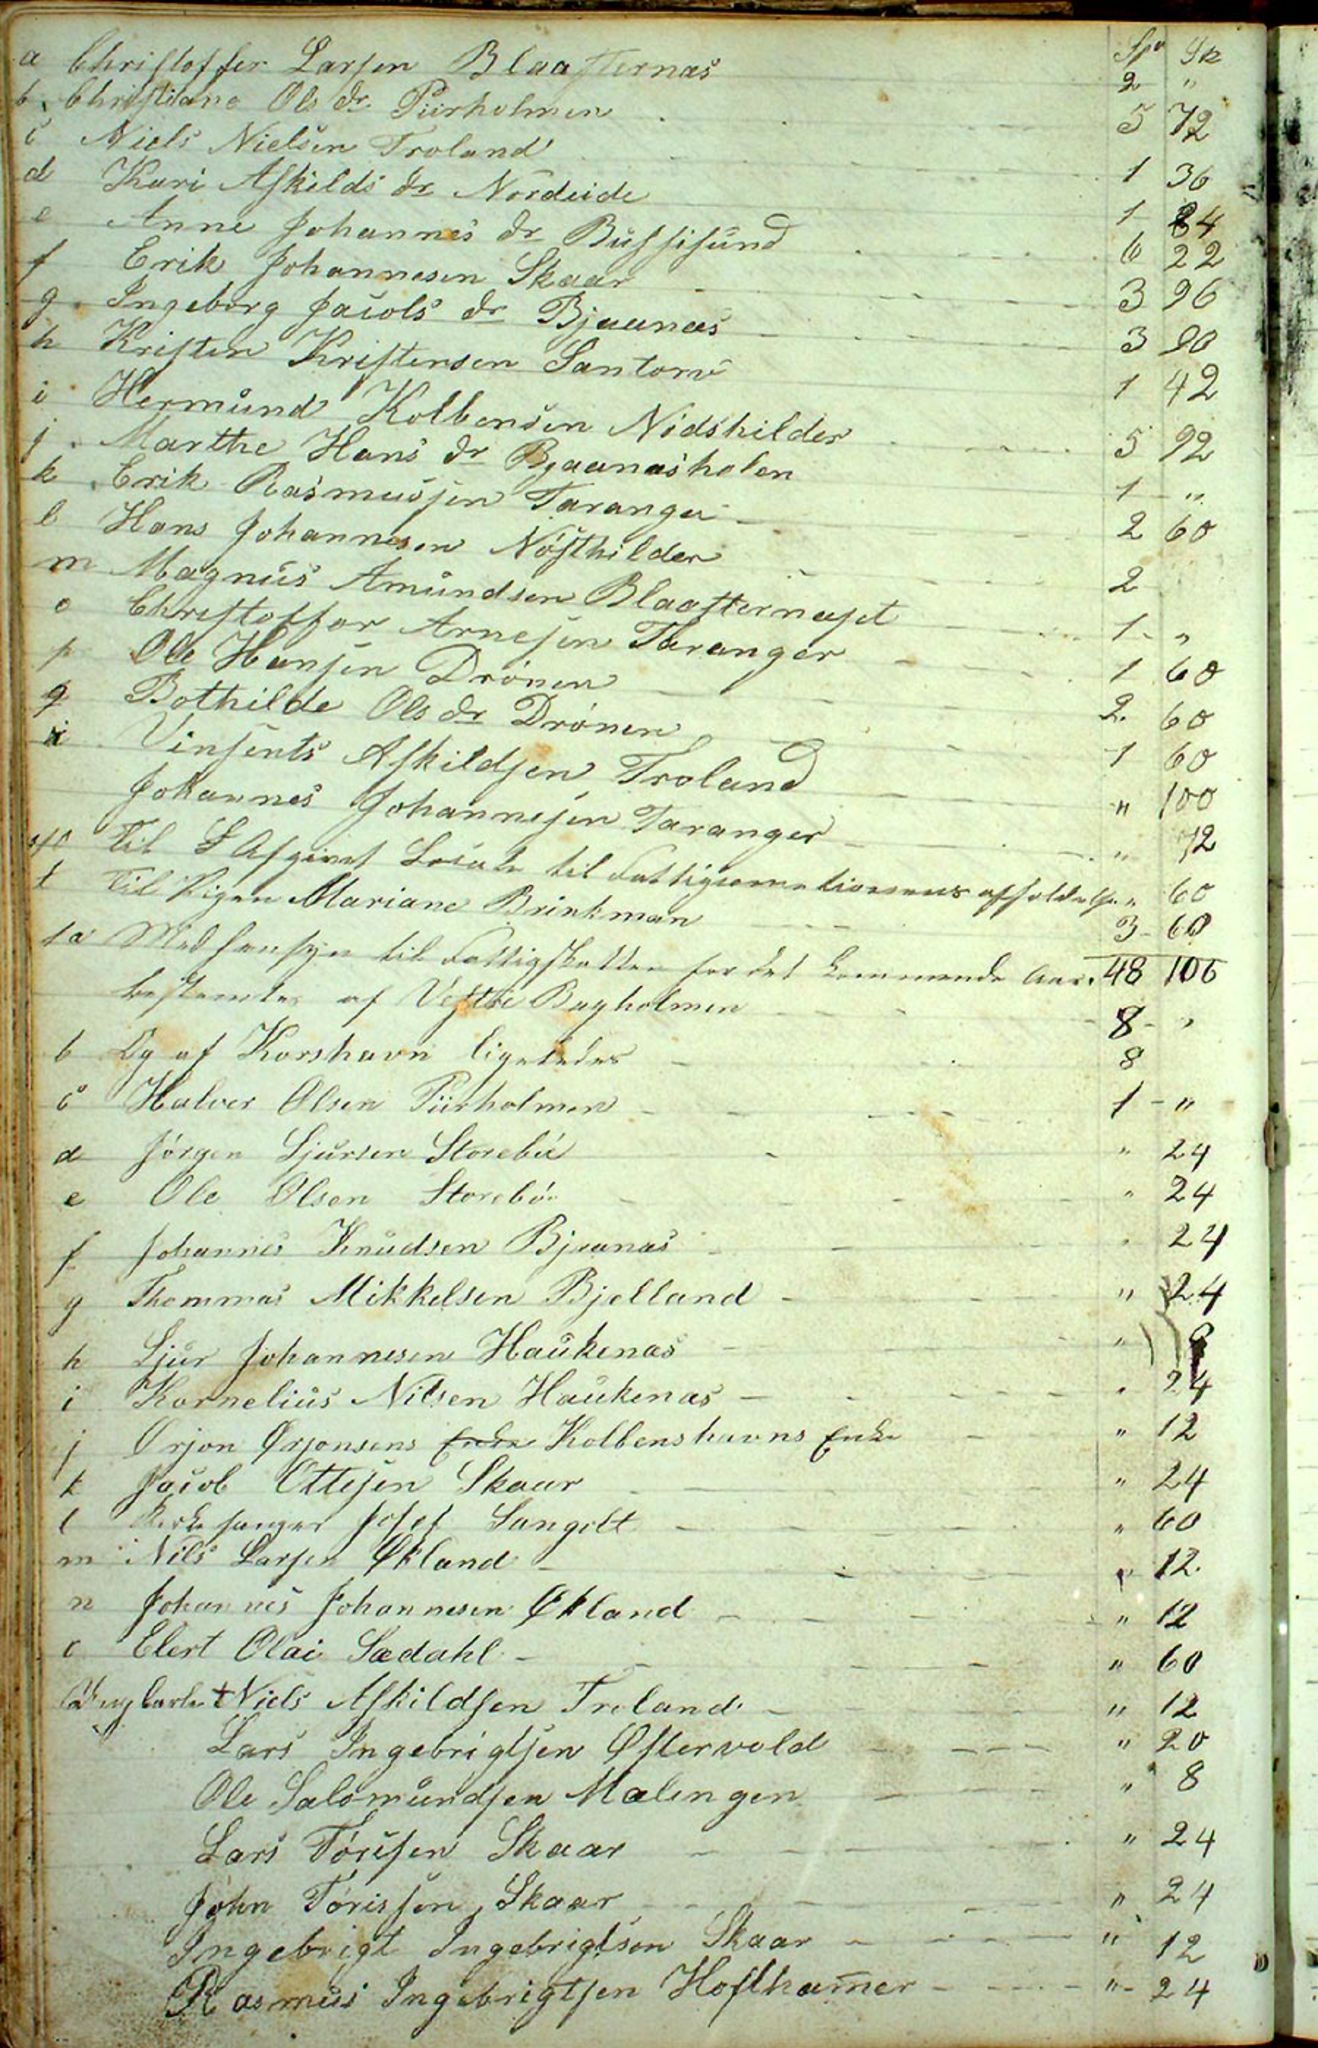 Spd Sk
a Christoffer Larsen Blaasternæs 2 "
b Christiane Ols dr Piirholmen 5 72
c Niels Nielsen Troland 1 36
d Kari Askilds dr Nordeide 1 84
e Anne Johannes dr Bussesund 6 22
f Erik Johannesen Skaar 3 96
g Ingeborg Jacobs dr Bjaanæs 3 90
h Kristen Kristensen Santorv 1 42
i Hermund Kolbensen Nødskilder 5 92
j Marthe Hans dr Bjaanæsholen 1 "
k Erik Rasmussen Taranger 2 60
l Hans Johannesen Nøsthilder 2
m Magnus Amundsen Blaasternæset 1 "
o Christoffer Arnesen Taranger 1 60
p Ole Hansen Drönen 2 60
q Bothilde Ols dr Drönen 1 60
Vinsents Askildsen Troland " 100
Johannes Johannesen Taranger " 72
Til Afgivet Locale til Fattigcommissionens afholdelse " 60
t Til Pigen Mariane Brinkman 3 60
Med Hensyn til Fattigskatten for det kommende Aar 48 106
bestemtes af Vestre Bagholmen 8 "
b Og af Korshavn ligeledes 8
c Halver Olsen Piirholmen 1 "
d Jörgen Sjursen Storebö " 24
e Ole Olsen Storebö " 24
f Johannes Knudsen Bjaanæs " 24
g Thommas Mikkelsen Bjelland " 24
h Sjur Johannesen Haukenæs "
i Kornelius Nilsen Haukenæs " 24
j Ørjon Ørjonsens Enke Kolbenshavns Enke " 12
k Jacob Ottesen Skaar " 24
l Kirkesanger Josef Sangolt " 60
m Nils Larsen Økland " 12
n Johannes Johannesen Økland " 12
o Elert Olai Sædahl " 60
Ungkarle Niels Askildsen Troland " 12
Lars Ingebrigtsen Østervold " 20
Ole Salomundsen Malingen " 8
Lars Törisen Skaar " 24
John Törissen Skaar " 24
Ingebrigt Ingebrigtsen Skaar " 12
Rasmus Ingebrigtsen Hofthamer " 24